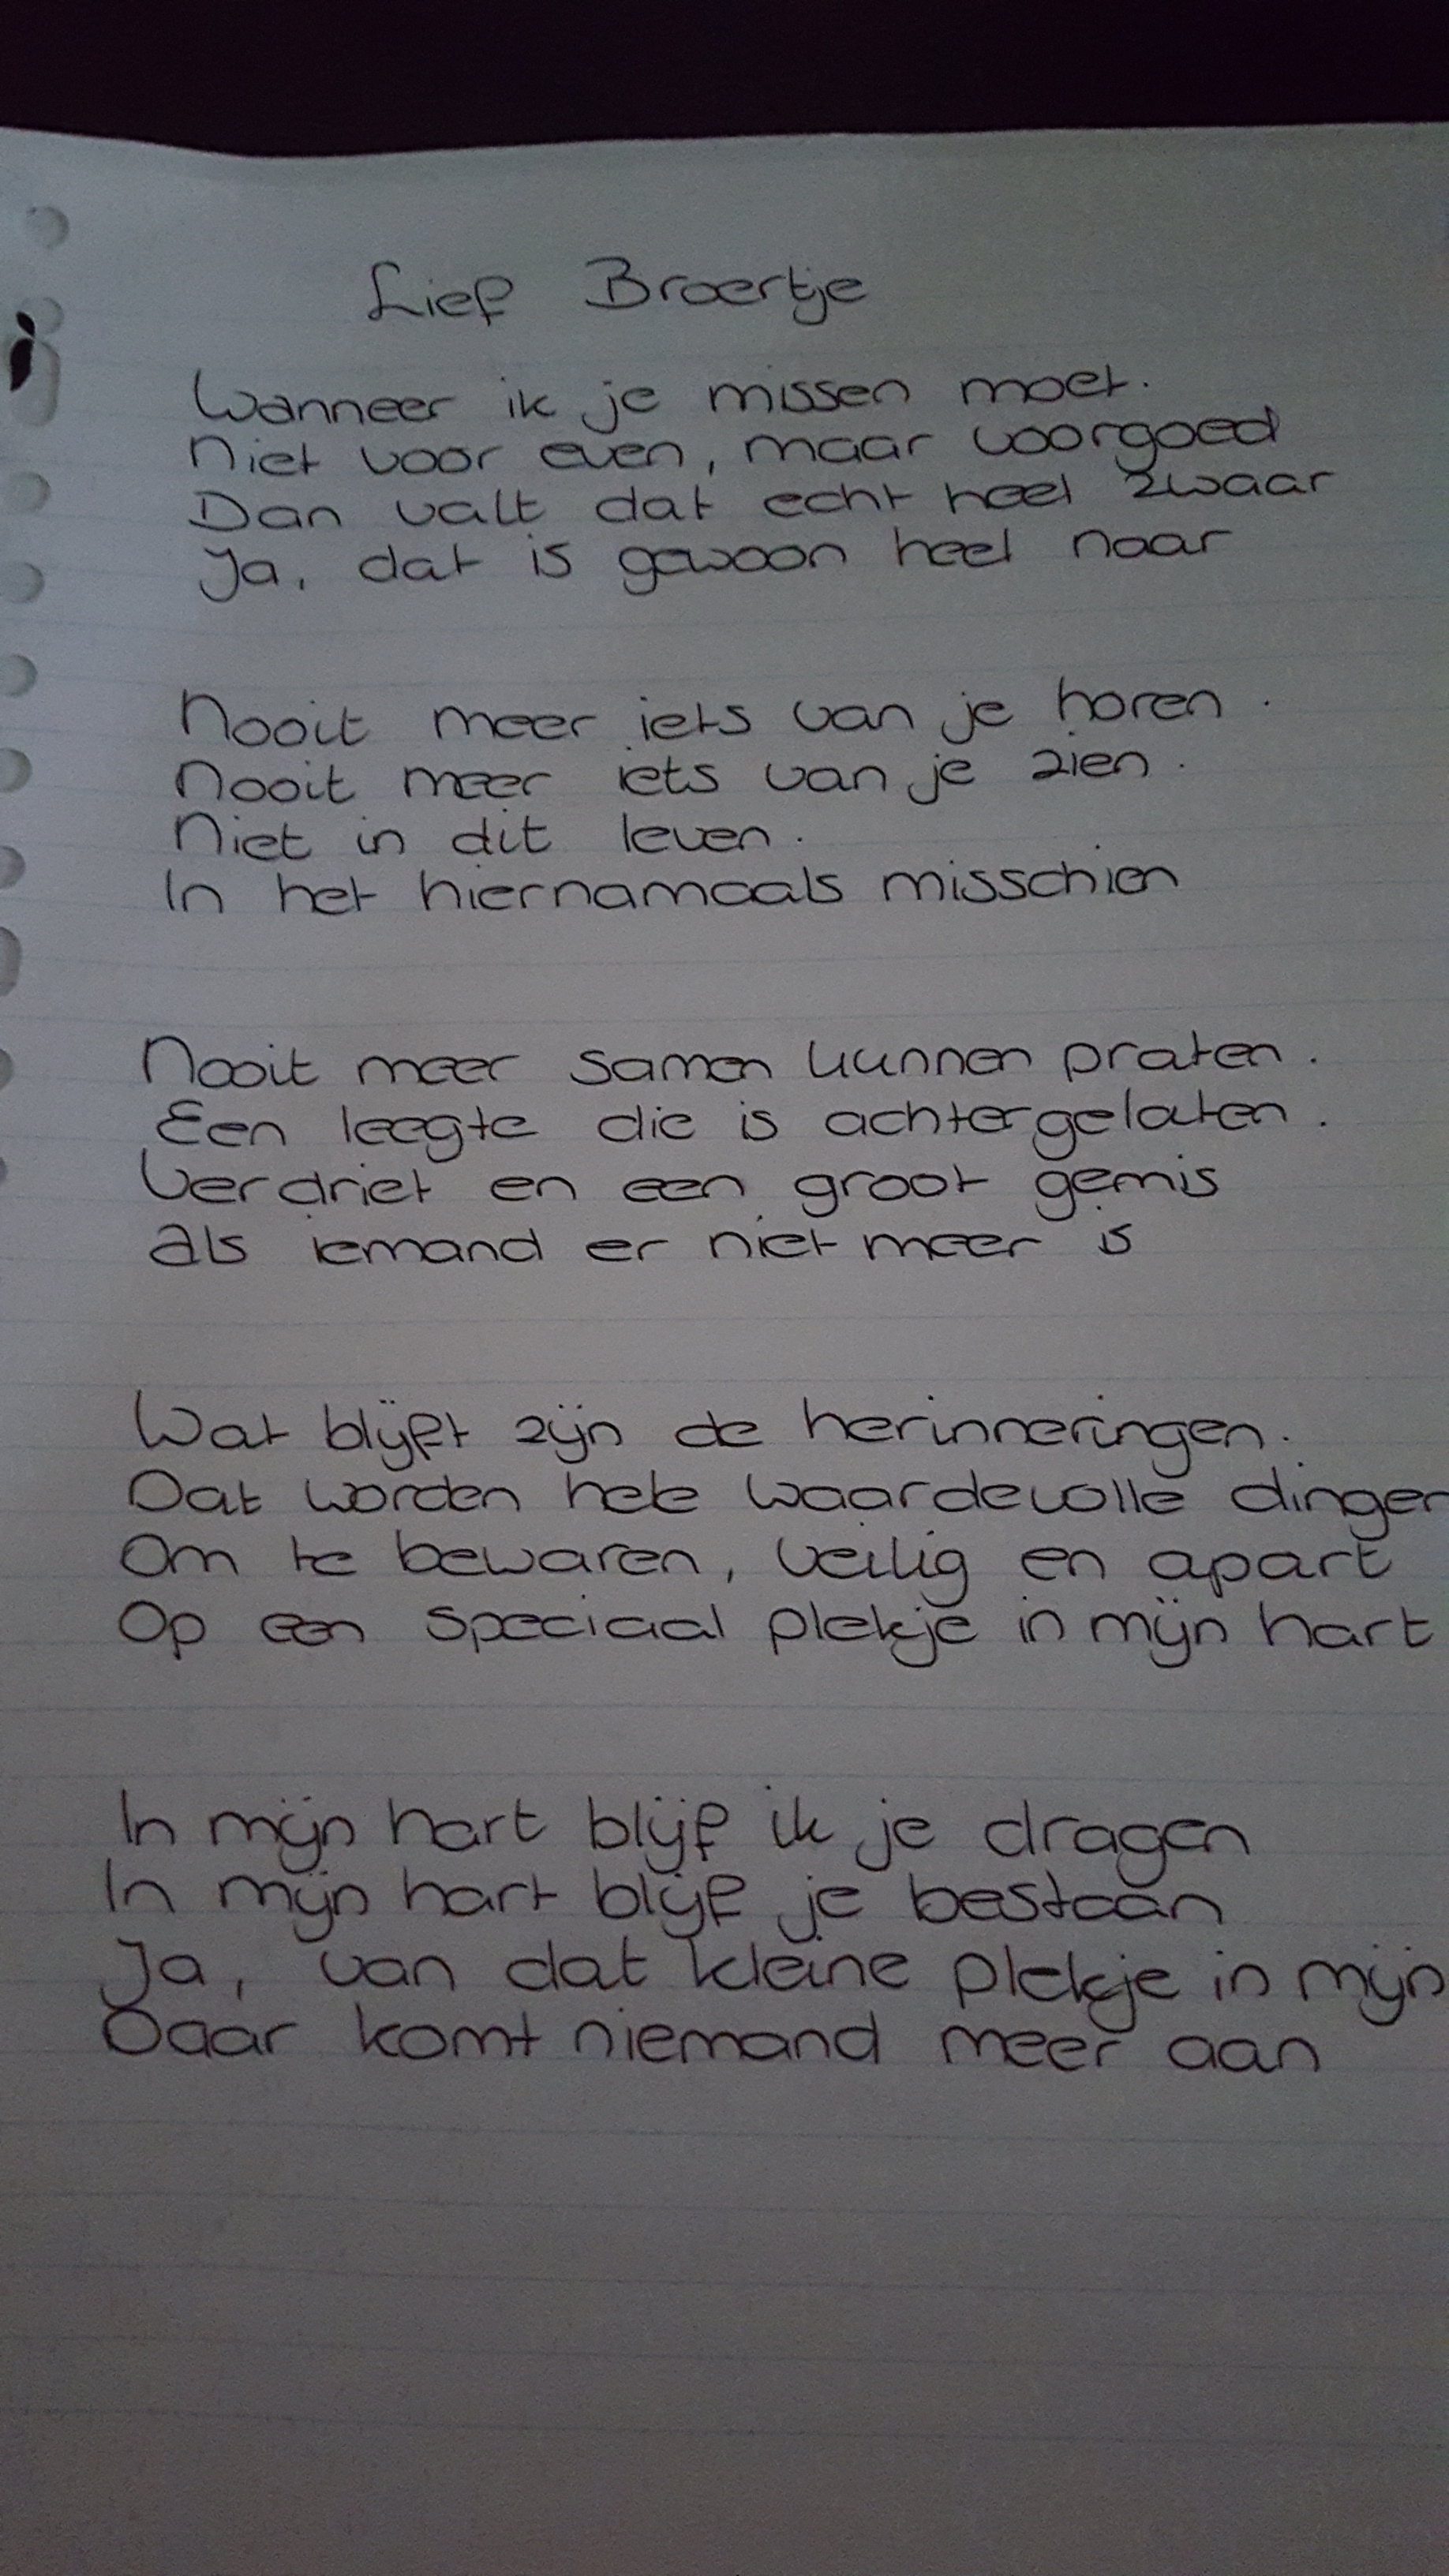 Lief Broertje
Wanneer ik je missen moet.
Niet voor even, maar voorgoed
Dan valt dat echt heel zwaar
Ja, dat is gewoon heel naar
Nooit meer iets van je horen.
Nooit meer iets van je zien.
Niet in dit leven.
In het hiernamaals misschien
Nooit meer samen kunnen praten.
Een leegte die is achtergelaten.
Verdriet en een groot gemis
Als iemand er niet meer is
Wat blijft zijn de herinneringen.
Dat worden hele waardevolle dingen
Om te bewaren, veilig en apart
Op een speciaal plekje in mijn hart
In mijn hart blijf ik je dragen
In mijn hart blijf je bestaan
Ja, van dat kleine plekje in mijn
Daar komt niemand meer aan